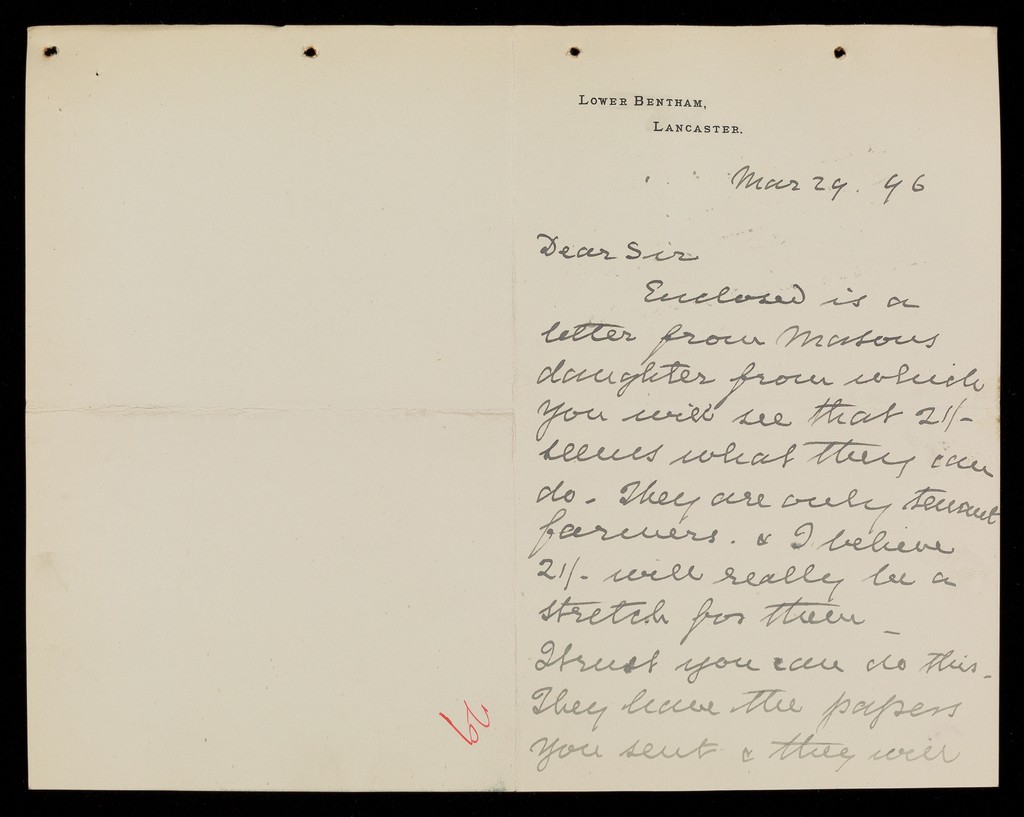 LOWER BENTHAM,
LANCASTER.
Mar 29. 96
Dear Sir
Enclosed is a
letter from Masons
daughter from which
you will see that 21/-
seems what they can
do - They are only tenant
farmers. & I believe
21/- will really be a
stretch for them -
I trust you can do this -
They have the papers
you sent & they will